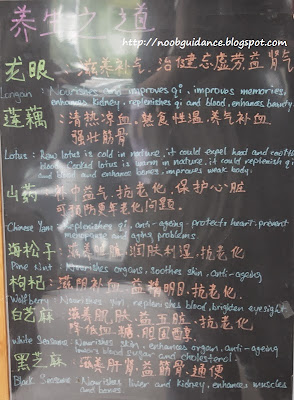 养生之道
http://noobguidance.blogspot.com
龙眼: 滋养补气,治健忘虚劳益肾气
Longan: Nourishes and improves qi, improves memories,
enhances kidney, replenishes qi and blood, enhances beauty.
莲藕: 清热凉血,熟食性温,养气补血
强壮筋骨
Lotus: Raw lotus is cold in nature, it could expel heat and
blood. Cooked lotus is warm in nature, it could replenish qi
blood and enhance bones, improves weak body.
山药: 补中益气,抗老化,保护心脏
可预防更年老化问题.
Chinese Yam: Replenishes qi, anti-ageing, protects heart, prevent
menopause and aging problems
海松子: 滋养 脏,润肤利湿,抗老化
Pine Nut: Nourishes organs, soothes skin, anti-ageing
枸杞: 滋阴补血,益精明目,抗老化.
Wolfberry: Nourishes yin, replenishes blood, brighten eyesight
白芝麻: 滋养肌肤,益五脏,抗老化
降低血糖,胆固醇
White Sesame: Nourishes skin, enhances organ, anti-ageing
lowers blood sugar and cholesterol.
黑芝麻: 滋养肝肾,益筋骨,通便
Black Sesame: Nourishes liver and kidney, enhances muscles
and bones.